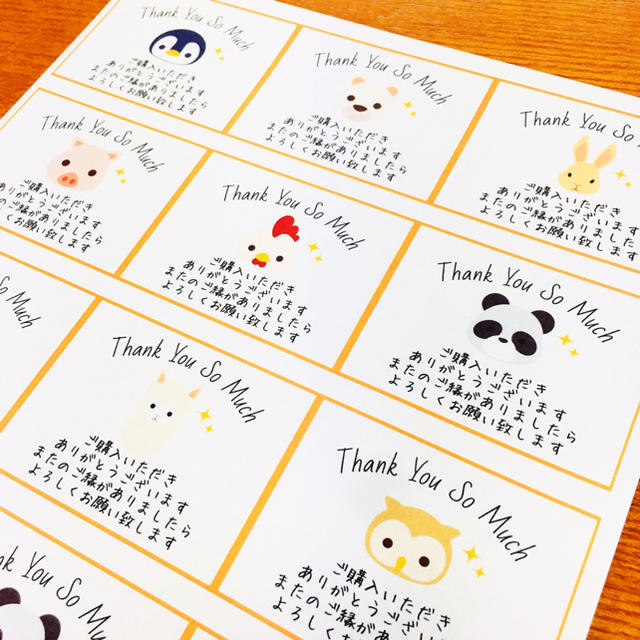 Thank You So Much
ご購入いただき
ありがとうございます
またのご縁がありましたら
よろしくお願い致します
Thank You So Much
ご購入いただき
ありがとうございます
またのご縁がありましたら
よろしくお願い致します
Thank You So M
ご購入いただき
ありがとうございます
またのご縁がありましたら
よろしくお願い致します
Thank You So Much
ご購入いただき
ありがとうございます
またのご縁がありましたら
よろしくお願い致します
Thank You So Much
ご購入いただき
ありがとうございます
またのご縁がありましたら
よろしくお願い致します
Thank You So Much
ご購入いただき
ありがとうございます
またのご縁がありましたら
よろしくお願い致します
So Much
Thank You So Much
ご購入いただき
ありがとうございます
またのご縁がありましたら
よろしくお願い致します
Thank You So Much
ご購入いただき
ありがとうございます
またのご縁がありましたら
よろしくお願い致します
Thank You So Much